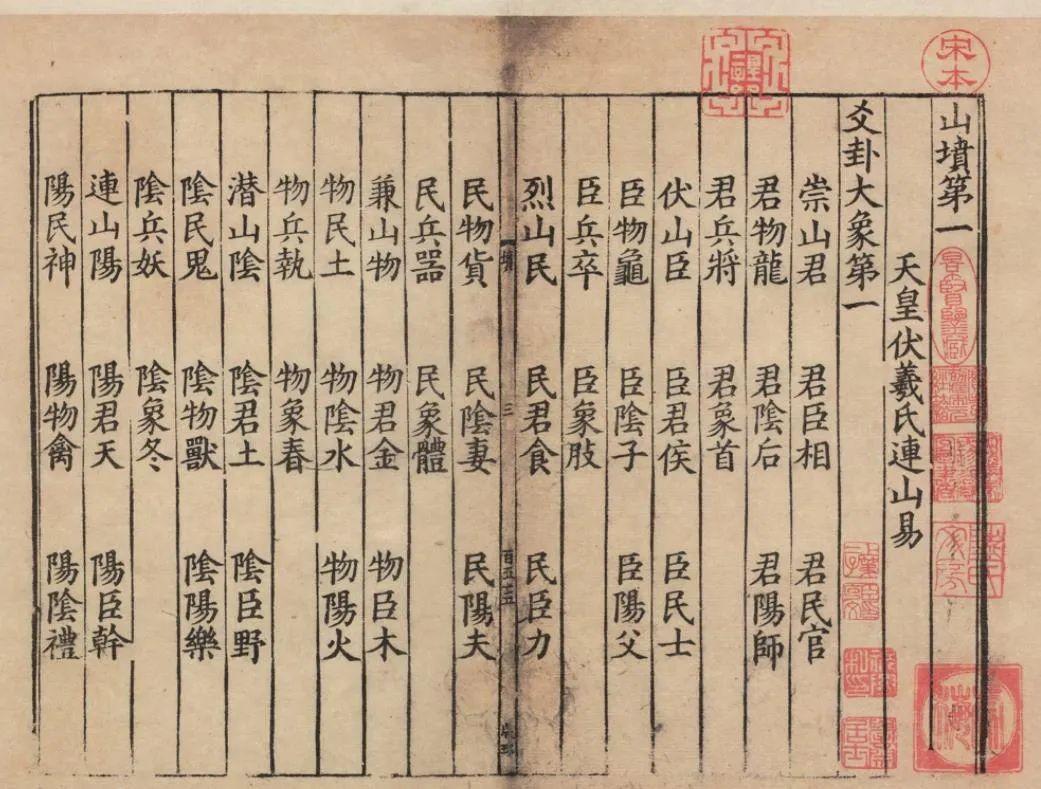 山墳第一
天皇伏羲氏連山易
爻卦大象第一
崇山君 君臣相 君民官
君物龍 君陰后 君陽師
君兵將 君象首
伏山臣 臣君侯 臣民士
臣物龜 臣陰子 臣陽父
臣兵卒 臣象肢
烈山民 民君食 民臣力
墳 三 百五十三
民物貨 民陰妻 民陽夫
民兵器 民象體
兼山物 物君金 物臣木
物民土 物陰水 物陽火
物兵執 物象春
潜山陰 陰君土 陰臣野
陰民鬼 陰物獸 陰陽樂
陰兵妖 陰象冬
連山陽 陽君天 陽臣幹
陽民神 陽物禽 陽陰禮
宋本